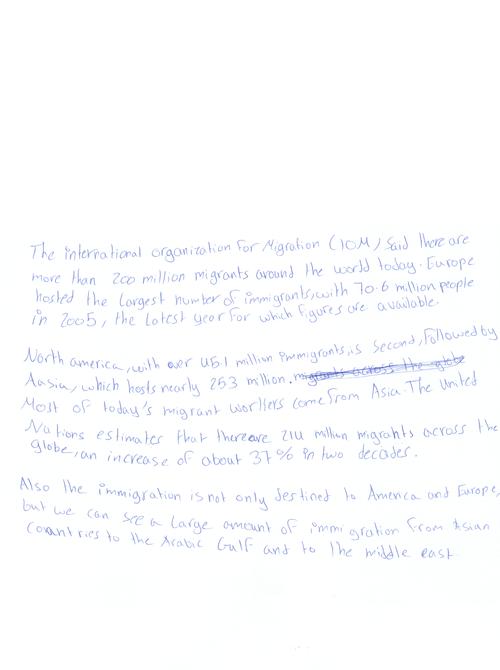 The international organization For Migration (IOM) said there are
more than 200 million migrants around the world today. Europe
hosted the largest number of immigrants, with 70.6 million people
in 2005, the latest year for which figures are available.
North america, with over 45.1 million immigrants, is second, followed by
Aasia, which hosts nearly 25.3 million. migrants across the globe
Most of today's migrant workers come from Asia. The United
Nations estimates that there are 214 million migrants across the
globe, an increase of about 37% in two decades.
Also the immigration is not only destined to America and Europe,
but we can see a large amount of immigration from Asian
countries to the Arabic Gulf and to the middle east